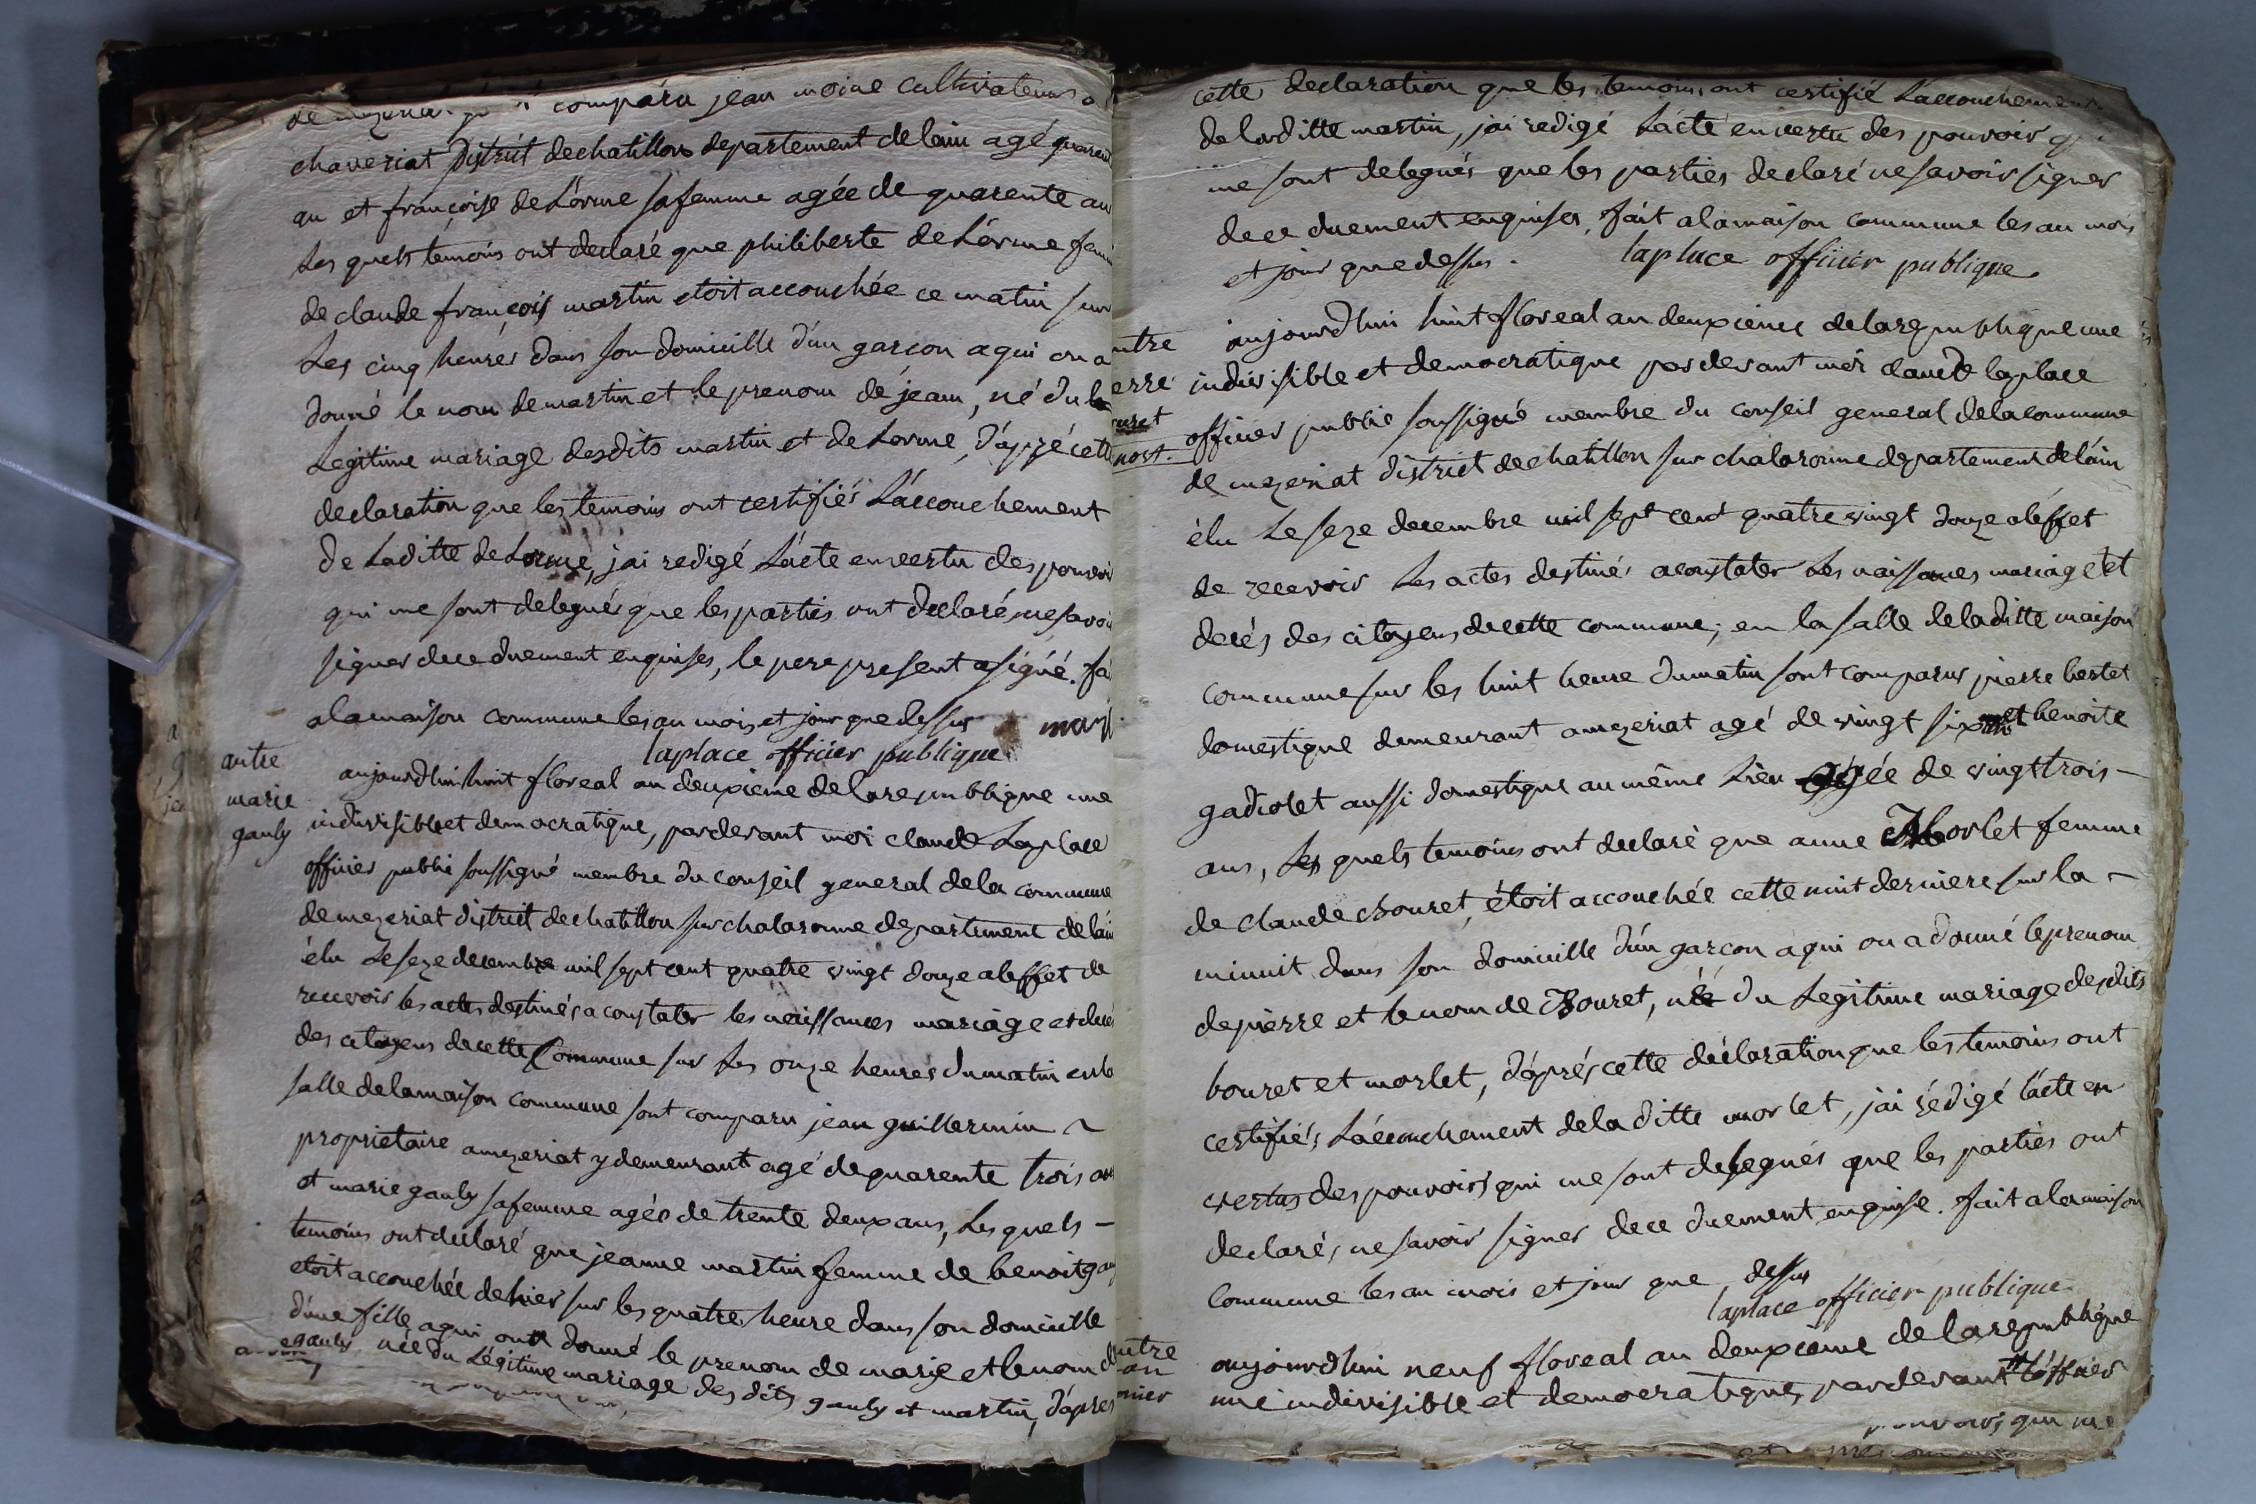 comparu jean moine cultivateur a
chaveriat District dechatillon departement delain agé quarent
an et françoise deLorme sa femme agée de quarente an
Les quels temoins ont declaré que philiberte deLorme fem
de claude françois martin etoit accouchée ce matin sur
Les cinq heures dans son domicille d'un garcon a qui on a
donné le nom de martin et le prenom de jean, né du le
Legitime mariage desdits martin et de Lorme, d'aprè cette
declaration que les temoins ont certifiés L'accouchement
de Laditte deLorme, jai redigé L'acte envertu des pouvoir
qui me sont delegués que les parties ont declaré ne savoir
signer dece duement enquises, le pere present a signé. fa
alamaison commune les an mois et jour que dessus mart
laplace officier publique
autre
marie
gauly
aujourdhui huit floreal an deuxieme delarepublique une
indivisible et democratique, pardevant moi claude Laplace
officier public soussigné membre du conseil general dela commune
demezeriat district dechatillon sur chalaronne departement delain
élu Le seze decembre mil sept cent quatre vingt douze aleffet de
recevoir les actes destinés a constater les naissances mariage et decé
des citoyens decette Commune sur Les onze heures dumatin en la
salle delamaison commune sont comparu jean guillermin
proprietaire amezeriat y demeurant agé dequarente trois an
et marie gauly safemme agée de trente deux ans, Les quels
temoins ont declaré que jeanne martin femme de benoit gau
etoit accouchée de hier sur les quatre heure dans son domicille
d'une fille aqui on a donné le prenom de marie et lenom d
egauly née du Légitime mariage des dits gauly et martin, d'apres
cette declaration que les temoins ont certifié L'accouchement
de laditte martin, jai redigé L'acte envertu des pouvoir
me sont delegués que les parties declaré ne savoir signer
dece duement enquises, fait alamaison commune les an mois
et jour que dessus. laplace officier publique
utre
erre
ouret
mort.
aujourdhui huit floreal an deuxieme delarepublique une
indivisible et democratique pardevant moi claude laplace
officier public soussigné membre du conseil general delacommune
de mezeriat district dechatillon sur chalaronne departement delain
élu Le seze decembre mil sept cent quatre vingt douze aleffet
de recevoir Les actes destinés aconstater Les naissances mariage et
decés des citoyens decette commune; en la salle de laditte maison
commune sur les huit heure dumatin sont comparus pierre
domestique demeurant amezeriat agé de vingt six ans et benoite
aussi domestique au même Lieu agée de vingt trois
ans, Les quels temoins ont declaré que anne Morlet femme
de claude Bouret, étoit accouchée cette nuit derniere sur la
minuit dans son domicille d'un garçon a qui on a donné leprenom
depierre et lenom de Bouret, né du Legitime mariage desdits
bouret et morlet, d'après cette déclaration que les temoins ont
certifiés L'accouchement dela ditte morlet, jai rédigé l'acte en
vertus des pouvoirs qui me sont delegués que les parties ont
declarés ne savoir signer dece duement enquise. fait alamaison
commune les an mois et jour que, dessus
laplace officier publique
utre
an
nier
aujourdhui neuf floreal an deuxieme de la republique
une indivisible et democratique, pardevant l'officier
pouvoirs qui me